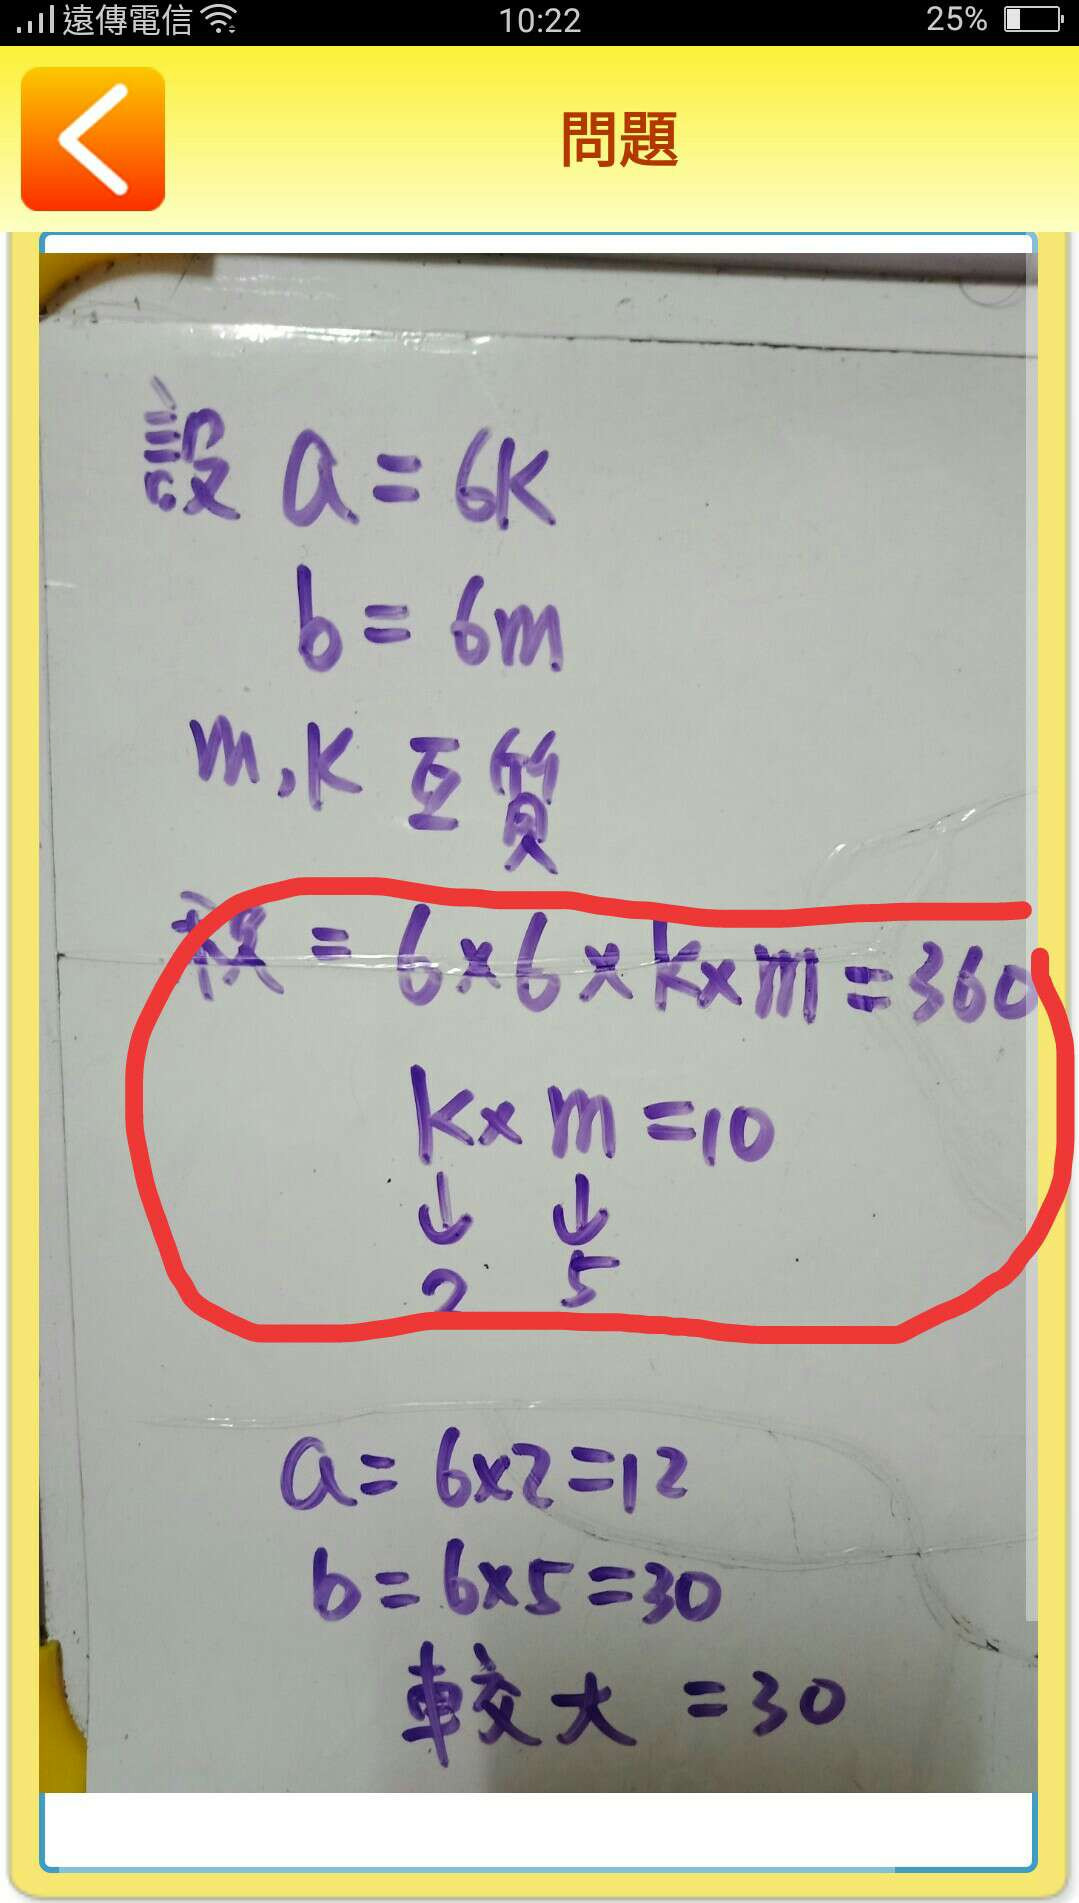 遠傳電信 10:22 25%
問題
設 a=6k
b=6m
m,k 互質
積=6×6×k×m=360
k×m=10
↓ ↓
2 5
a=6×2=12
b=6×5=30
較大=30